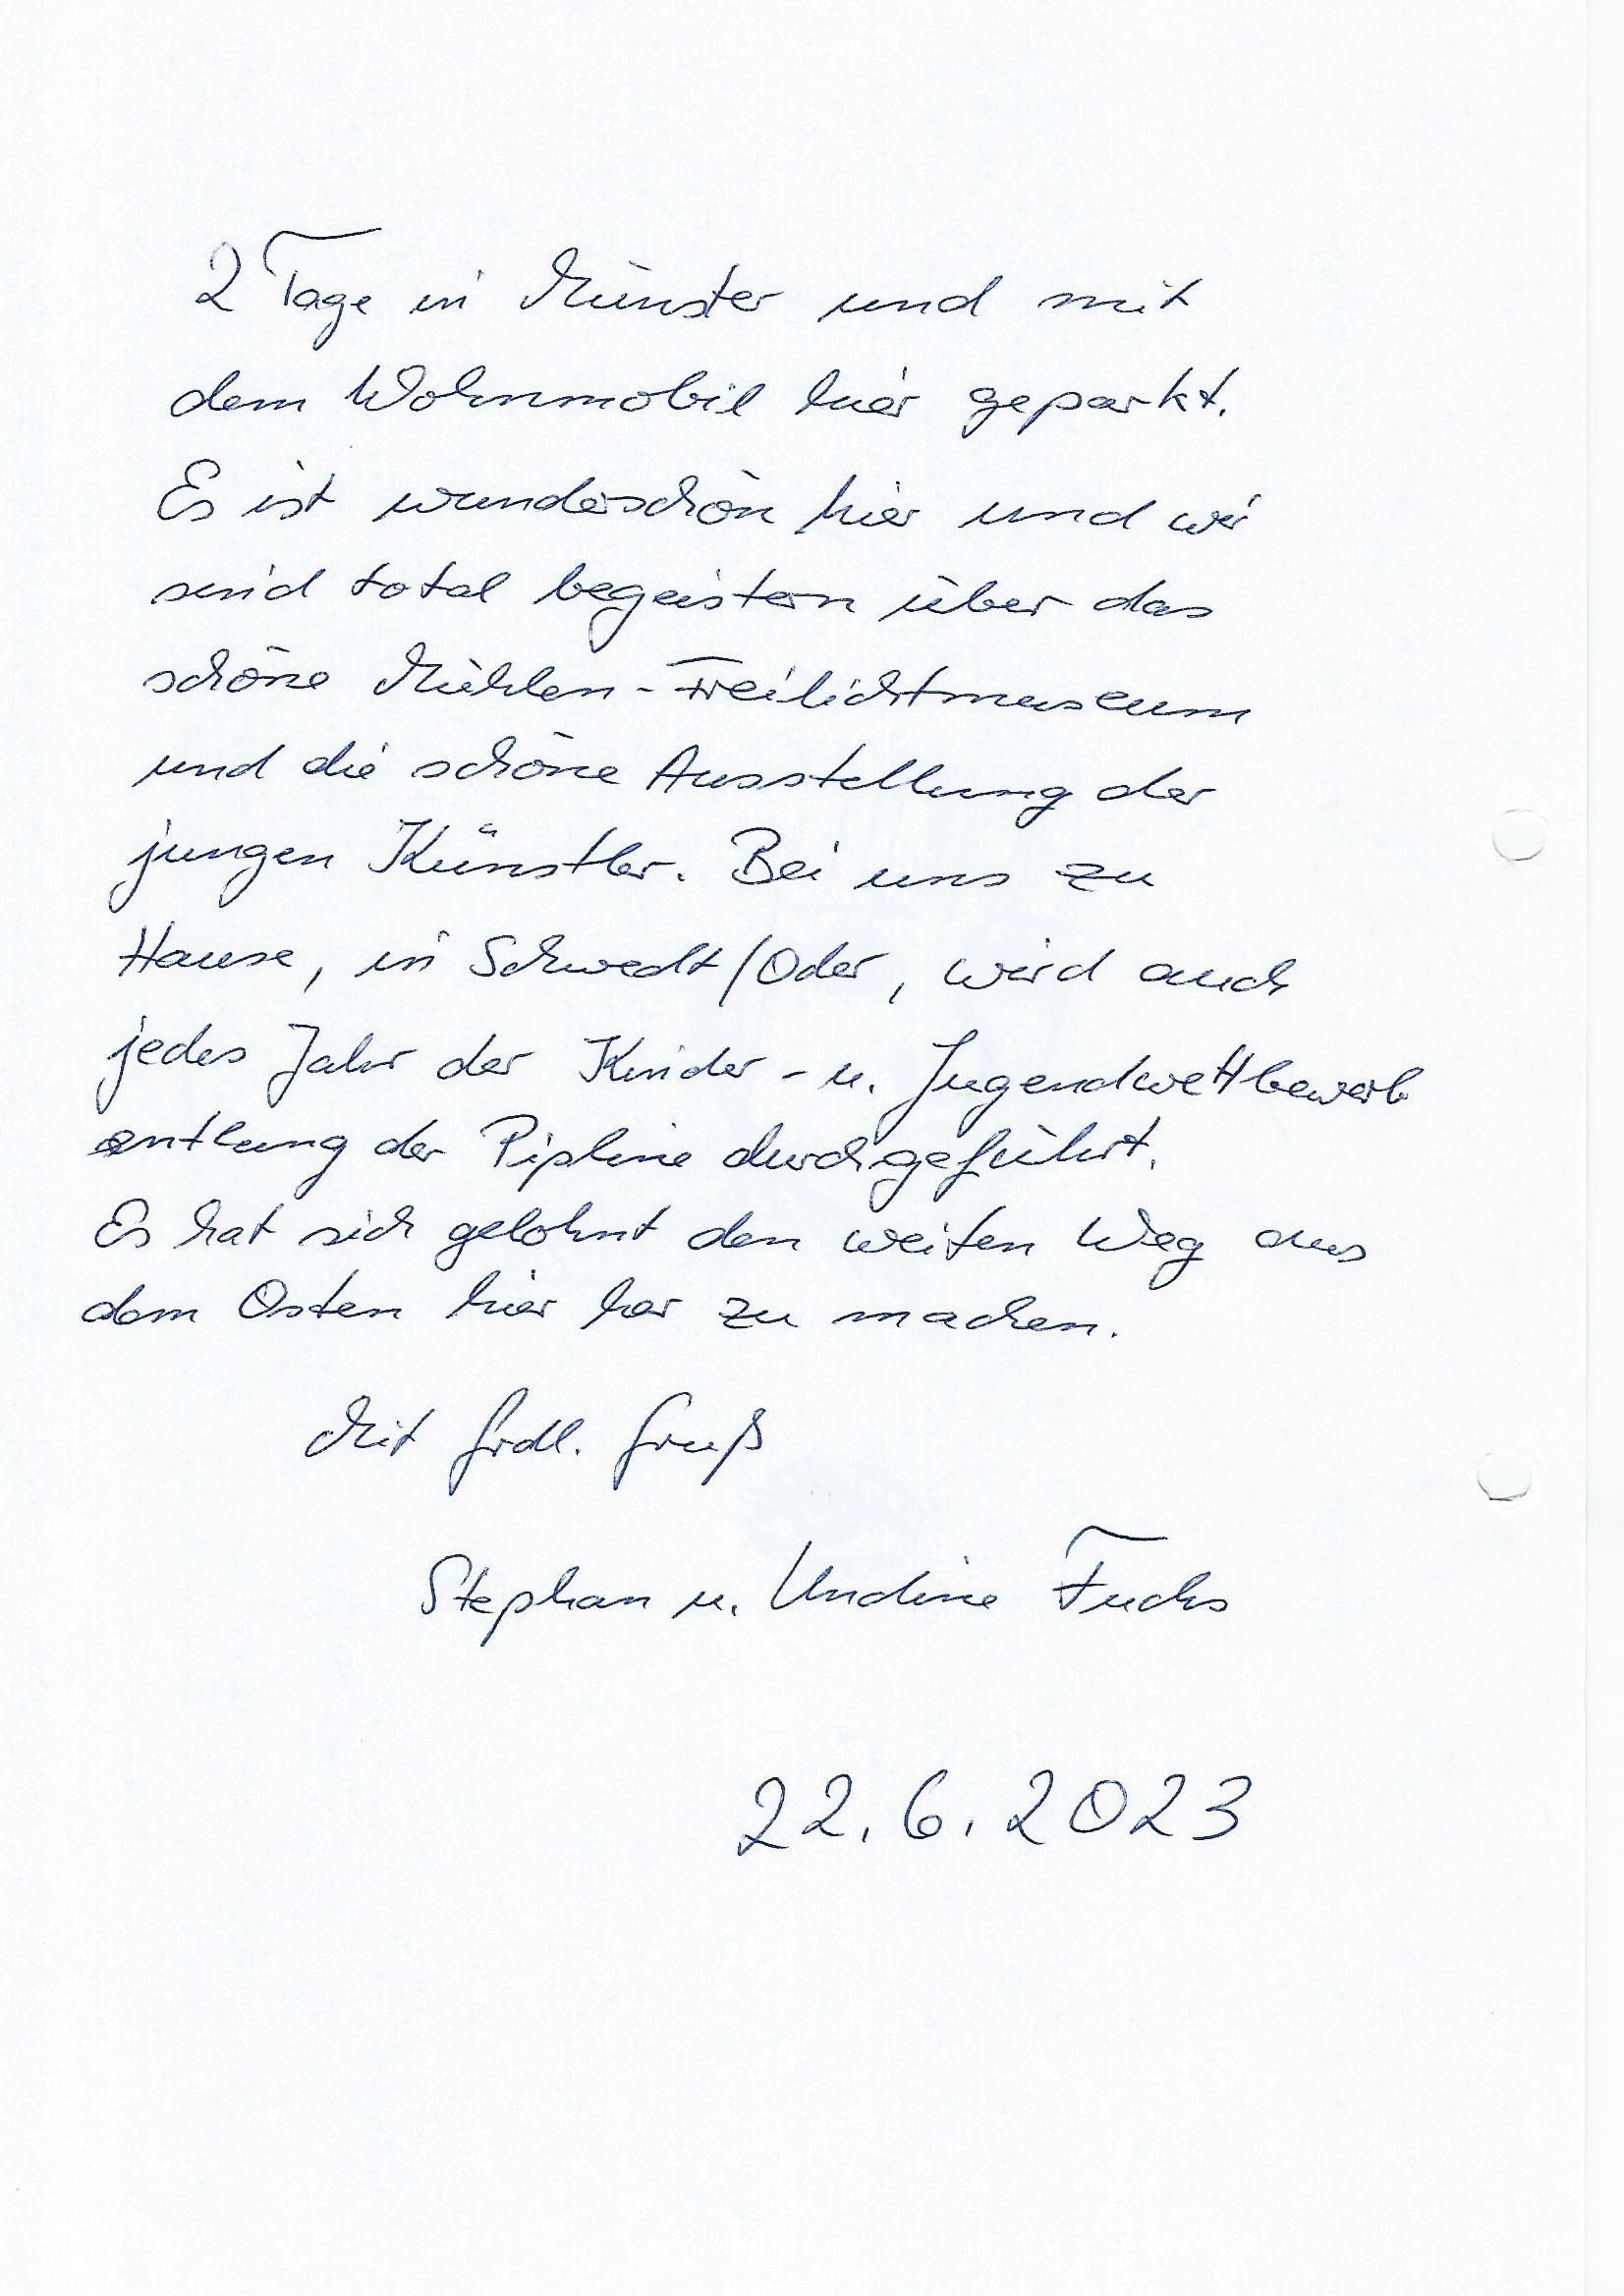 2 Tage in Münster und mit
dem Wohnmobil hier geparkt.
Es ist wunderschön hier und wir
sind total begeistern über das
schöne Mühlen-Freilichtmuseum
und die schöne Ausstellung der
jungen Künstler. Bei uns zu
Hause, in Schwedt/Oder, wird auch
jedes Jahr der Kinder- u. Jugendwettbewerb
entlang der Pipline durchgeführt.
Es hat sich gelohnt den weiten Weg aus
dem Osten hier her zu machen.
Mit frdl. Gruß
Stephan u. Undine Fuchs
22.6.2023